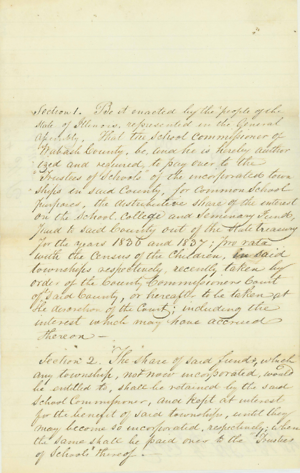 Section 1. Be it enacted by the people of the
State of Illinois, represented in the General
Assembly, That the School Commissioner of
Wabash County, be, and he is hereby author
ized and required, to pay over to the
Trustees of Schools of the incorporated town
ships in said County, for Common School
purposes, the distributive share of the interest
on the School, College and Seminary Fund,
paid to said County out of the State Treasury
for the years 1836 and 1837; pro rata
with the Census of the Children, in said
townships respectively, recently taken by
order of the County Commissioners Court
of said County, or hereafter to be taken at
the discretion of the Court; including the
interest which may have accrued
thereon —
Section 2. The share of said funds, which
any township, not now incorporated, would
be entitled to, shall be retained by the said
School Commissioner, and kept at interest
for the benefit of said townships, until they
may become so incorporated, respectively; when
the same shall be paid over to the Trustees
of Schools thereof.